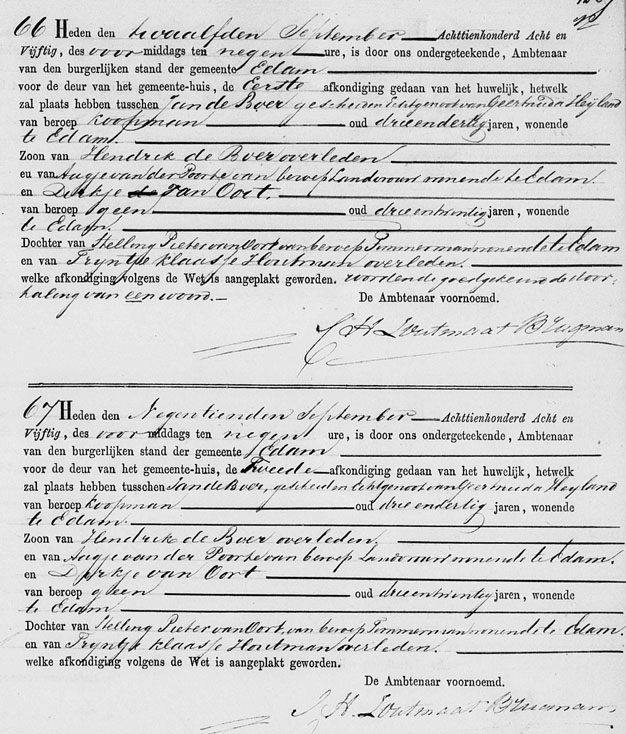 66 Heden den twaalfden September Achttienhonderd Acht en
Vijftig, des voor middags ten negen ure, is door ons ondergeteekende, Ambtenaar
van den burgerlijken stand der gemeente Edam
voor de deur van het gemeente-huis, de Eerste afkondiging gedaan van het huwelijk, hetwelk
zal plaats hebben tusschen Jan de Boer gescheiden Echtgenoot van Geertruida Heyland
van beroep koopman oud drieendertig jaren, wonende
te Edam.
Zoon van Hendrik de Boer overleden
en van Aagje van der Poorte van beroep Landvouw wonende te Edam.
en Dirkje van Oort.
van beroep geen oud drieentwintig jaren, wonende
te Edam.
Dochter van Helling Pieter van Oort van beroep Timmerman wonende te Edam
en van Tryntje Klaasje Houtman overleden.
welke afkondiging volgens de Wet is aangeplakt geworden. wordende goedgekeurd de door-
haling van een woord.
De Ambtenaar voornoemd.
H Loutmaat Brugman
67 Heden den Negentienden September Achttienhonderd Acht en
Vijftig, des voor middags ten negen ure, is door ons ondergeteekende, Ambtenaar
van den burgerlijken stand der gemeente Edam
voor de deur van het gemeente-huis, de Tweede afkondiging gedaan van het huwelijk, hetwelk
zal plaats hebben tusschen Jan de Boer, gescheiden Echtgenoot van Geertruida Heyland
van beroep koopman oud drieendertig jaren, wonende
te Edam.
Zoon van Hendrik de Boer overleden.
en van Aagje van der Poorte van beroep Landvouw wonende te Edam.
en Dirkje van Oort
van beroep geen oud drieentwintig jaren, wonende
te Edam
Dochter van Helling Pieter van Oort, van beroep Timmerman wonende te Edam.
en van Tryntje Klaasje Houtman overleden.
welke afkondiging volgens de Wet is aangeplakt geworden.
De Ambtenaar voornoemd.
H. Loutmaat Brugman